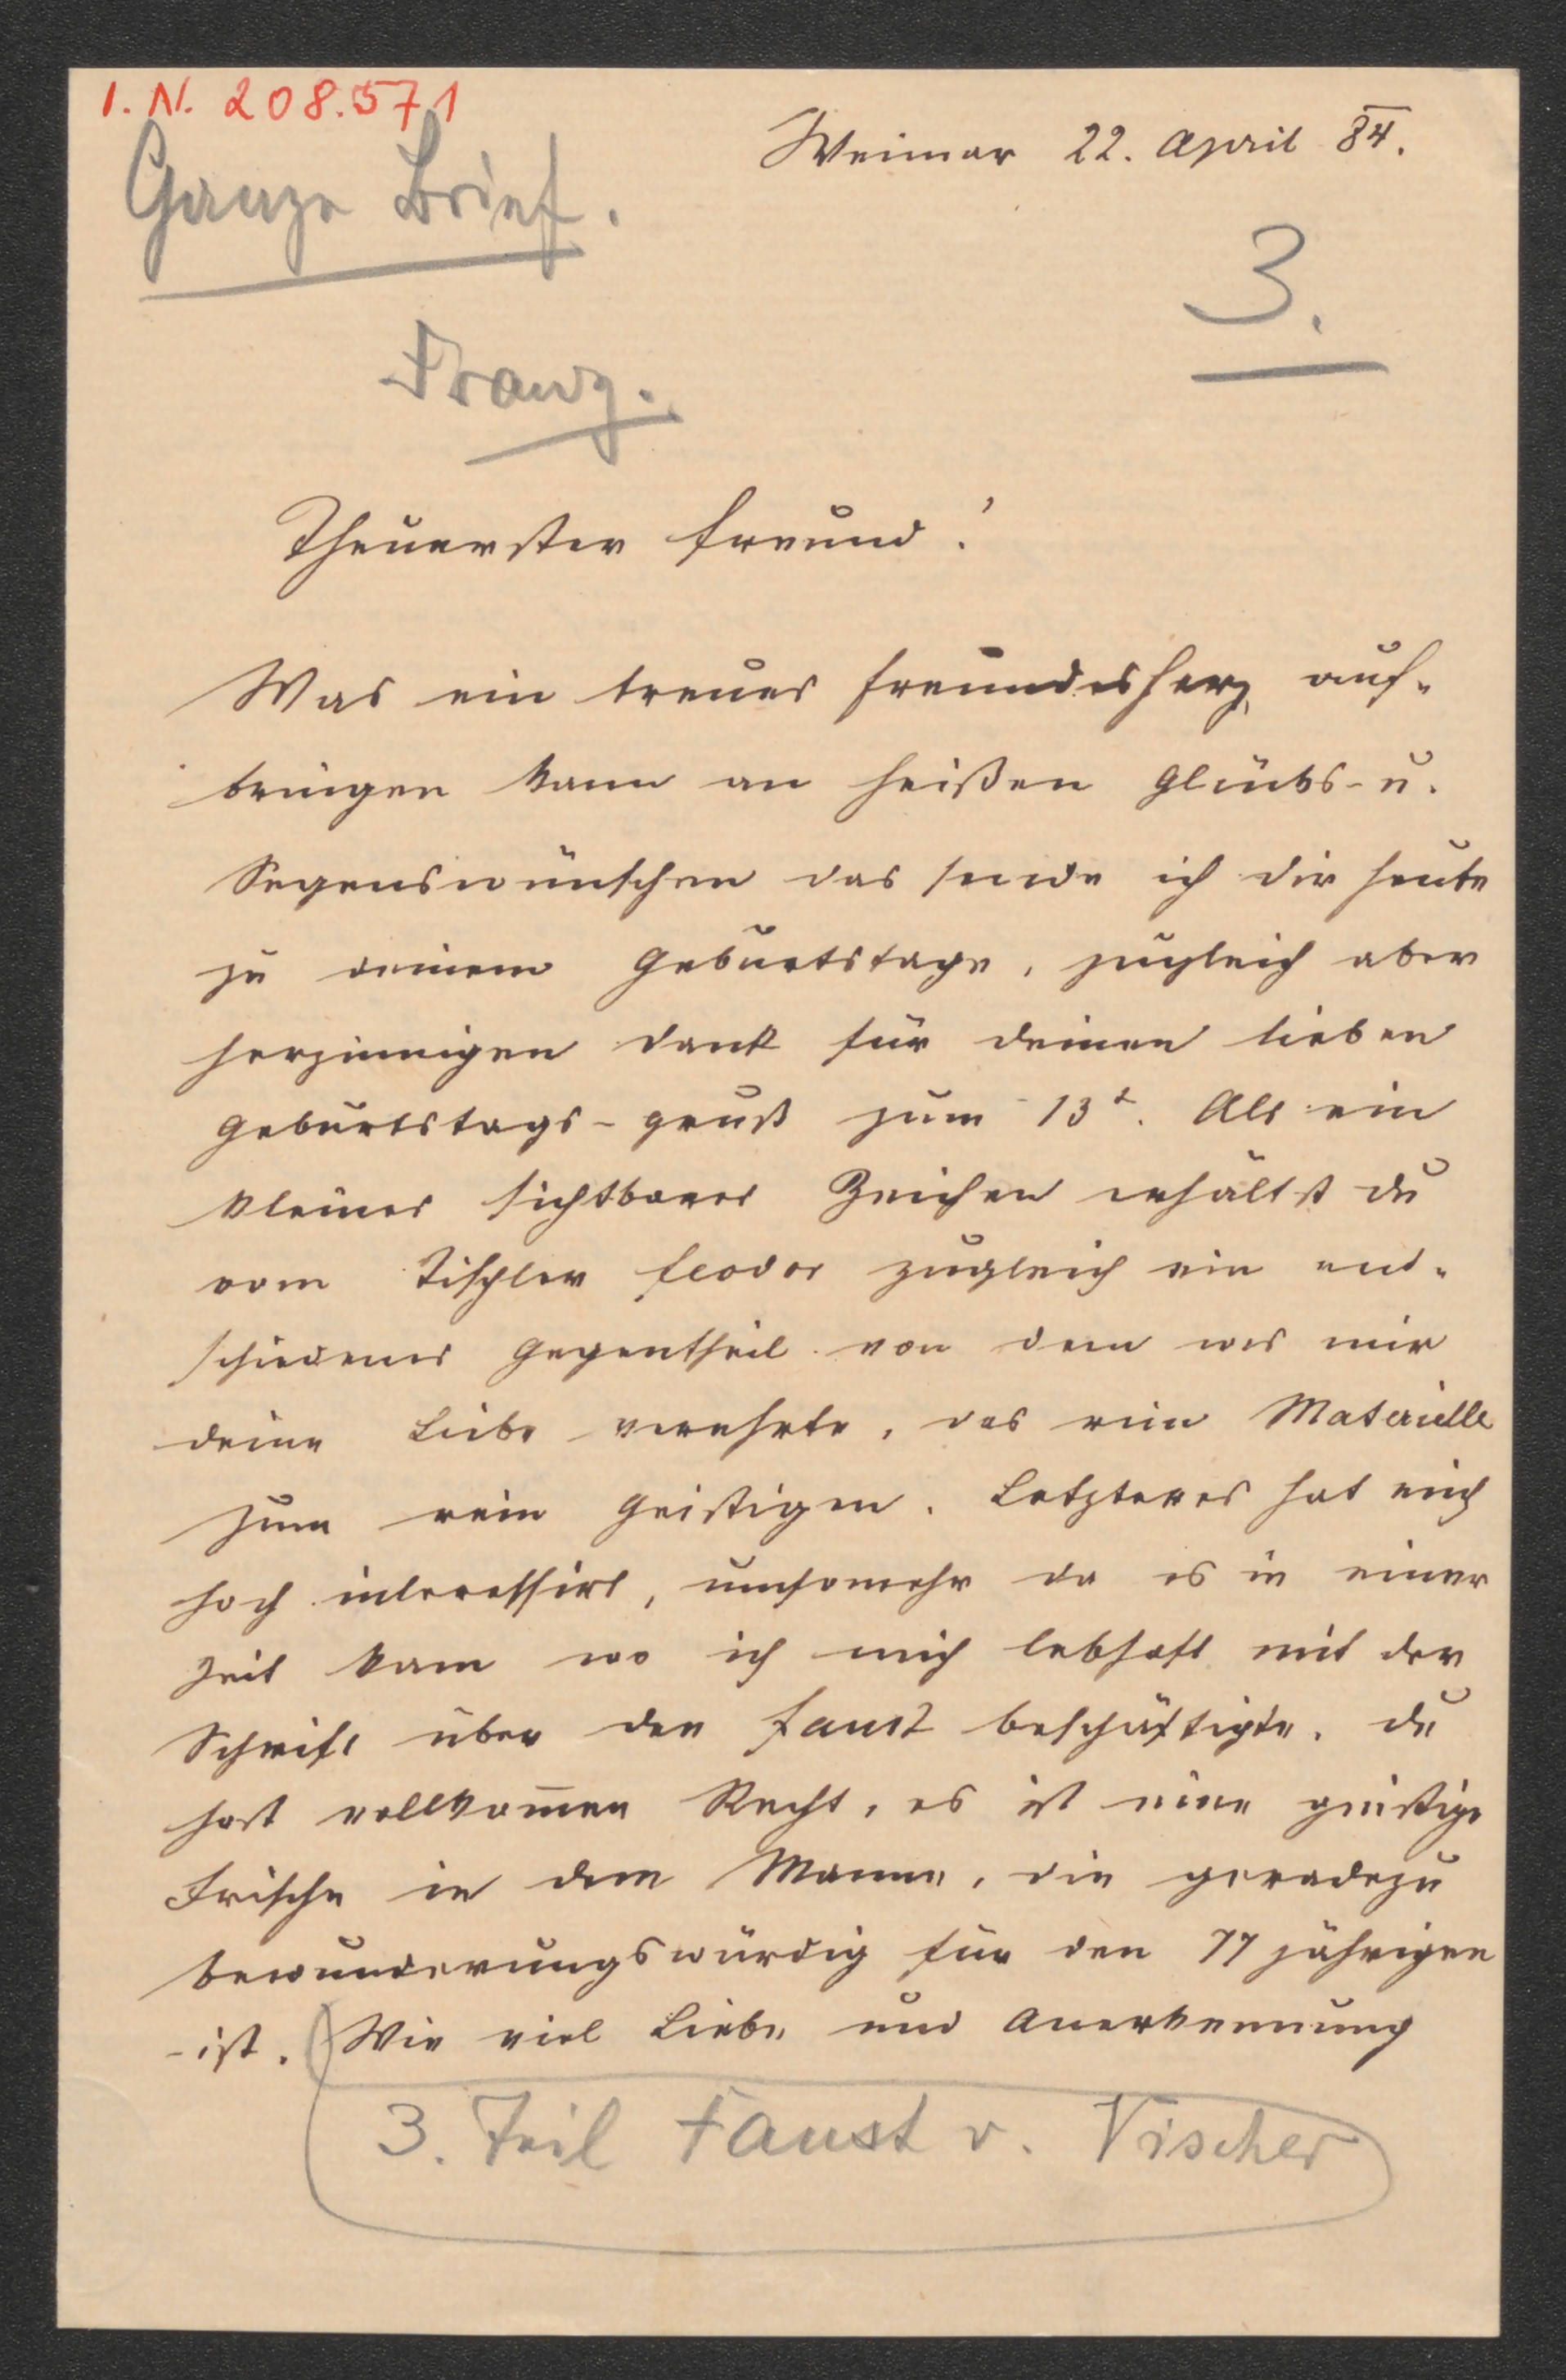 I. N. 208.571
Weimar 22. April 84.
Ganze Brief.
3.
Franz.
Theuerster Freund!
Was ein treues Freundesherz auf-
bringen kann an heißen Glücks- u.
Segenswünschen das sende ich dir heute
zu deinem Geburtstage, zugleich aber
herzinnigen Dank für deinen lieben
Geburtstags-gruß zum 13t. Als ein
kleines sichtbares Zeichen erhältst du
vom Tischler Feodor zugleich ein ent-
schiedenes Gegentheil von dem was mir
deine Liebe verehrte, das rein Materielle
zum rein Geistigen. Letzteres hat mich
hoch interessirt, umsomehr da es in einer
Zeit kam wo ich mich lebhaft mit der
Schrift über den Faust beschäftigte. Du
hast vollkom̅en Recht, es ist eine geistige
Frische in dem Manne, die geradezu
bewunderungswürdig für den 77 jährigen
ist. Wie viel Liebe und Anerkennung
3. Teil Faust v. Vischer